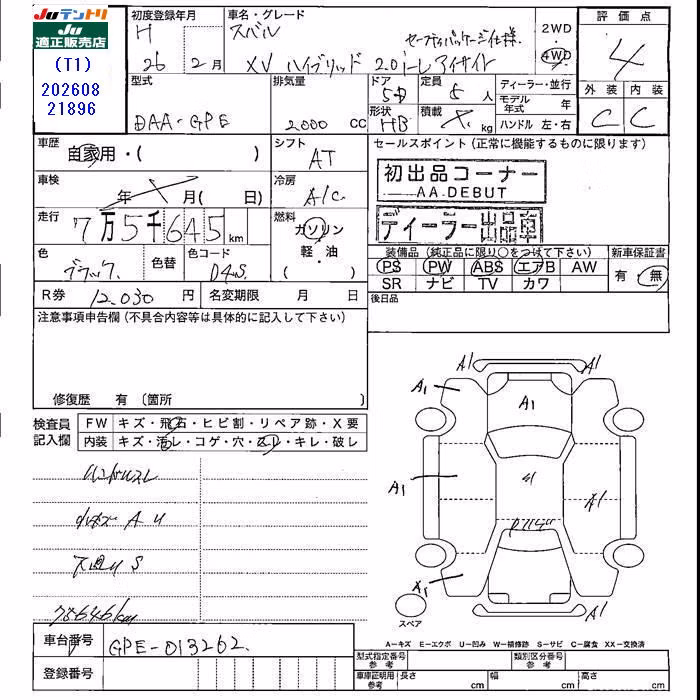 Juテントリ
Ju
適正販売店
(T1)
202608
21896
初度登録年月
H
26 年 2 月
車名・グレード
スバル
XV ハイブリッド 2.0i-L アイサイト
セーフティパッケージ仕様
2WD
4WD
評価点
4
外装 内装
C C
型式
DAA-GPE
排気量
2000 CC
ドア
5D
形状
HB
定員
5 人
積載
kg
ディーラー・並行
モデル年式 年
ハンドル 左・右
車歴
自家用・( )
シフト
AT
セールスポイント (正常に機能するものに限ります)
初出品コーナー
AA DEBUT
ディーラー出品車
車検
年 月( 日)
冷房
A/C
走行
7万5千645 km
燃料
ガソリン
軽・油
( )
色
ブラック
色替
色コード
D4S
装備品 (純正品に限り○をつけて下さい)
PS PW ABS エアB AW
SR ナビ TV カワ
新車保証書
有 無
R券 12,030 円
名変期限 月 日
後日品
注意事項申告欄 (不具合内容等は具体的に記入して下さい)
修復歴 有 〔箇所 〕
検査員
記入欄
FW キズ・飛石・ヒビ割・リペア跡・X要
内装 キズ・汚レ・コゲ・穴・スレ・キレ・破レ
ハンドルスレ
小キズ A U
下回り S
75646km
A1 A1
A1 A1
A1 A1 A1
X1 A1
スペア
車台番号 GPE-013262
登録番号
A=キズ E=エクボ U=凹み W=補修跡 S=サビ C=腐食 XX=交換済
型式指定番号 参考
類別区分番号 参考
車庫証明用 参考 長さ cm 幅 cm 高さ cm